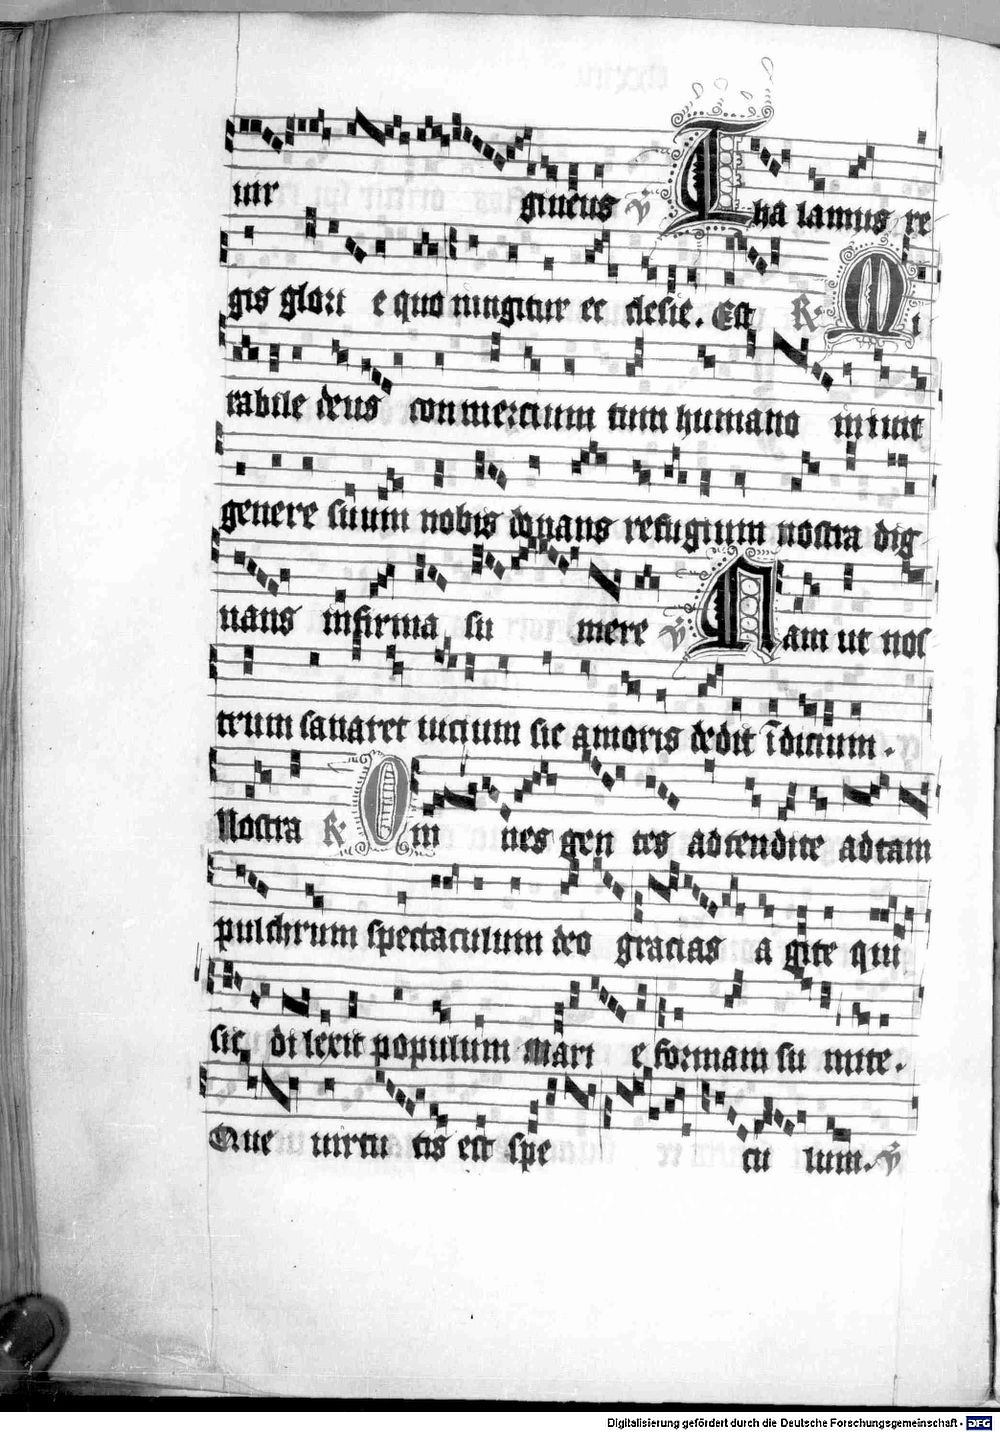 uir gineus ℣ Tha lamus re
gis glori e quo iungitur ec clesie. Est ℟ Mi
rabile deus conmercium tum humano iniunt
genere suum nobis donans refugium nostra dig
nans infirma su mere ℣ Nam ut nos
trum sanaret uicium sic amoris dedit īdicium.
Nostra ℟ Om nes gen tes adtendite adtam
pulchrum spectaculum deo gracias a gite qui
sic dilexit populum Mari e formam su mite.
Que uirtu tis est spe cu lum. ℣
Digitalisierung gefördert durch die Deutsche Forschungsgemeinschaft - DFG